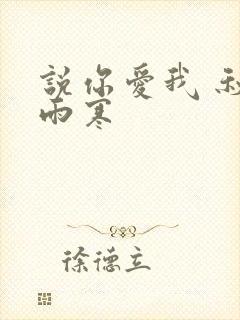 說你愛我
雨寒
徐德立